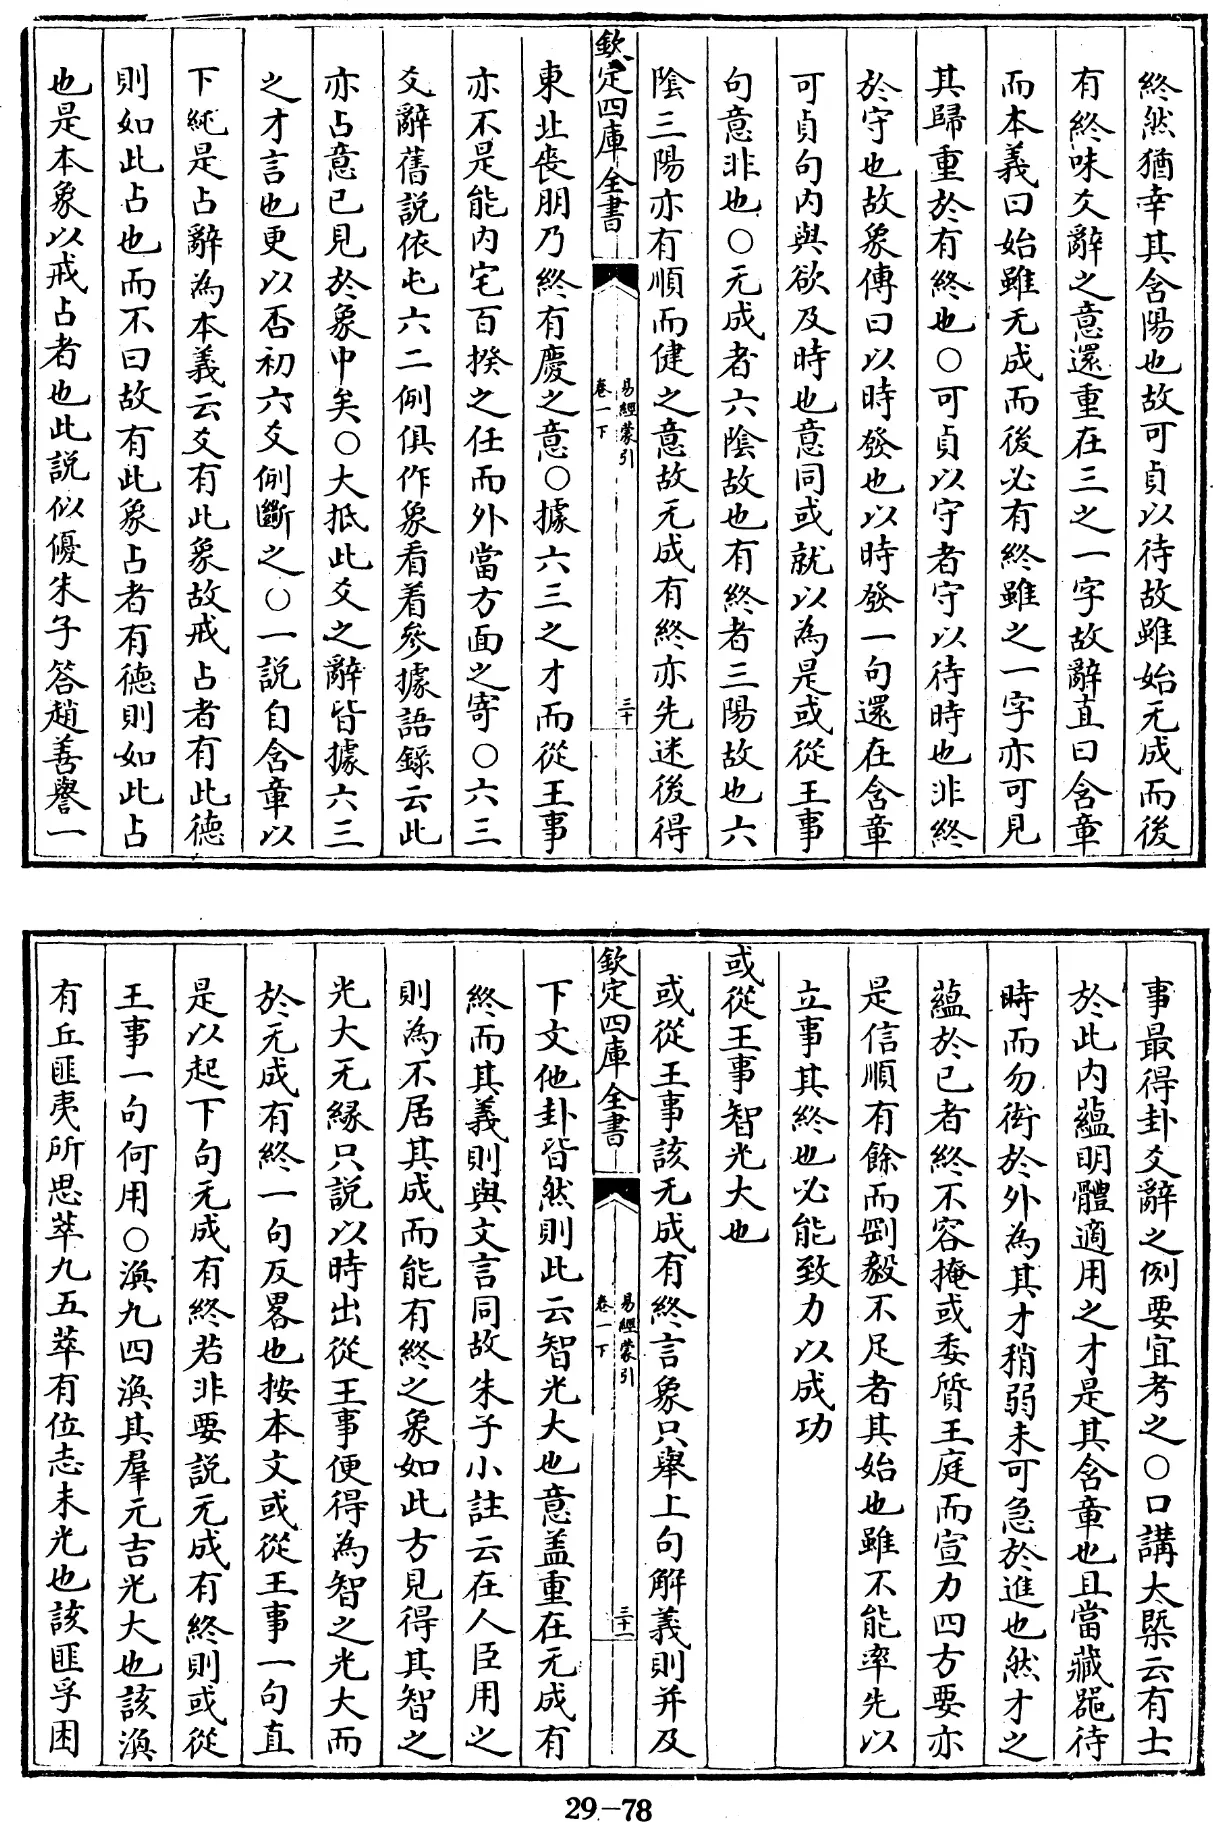 終然猶幸其含陽也故可貞以待故雖始无成而後
有終味爻辭之意還重在三之一字故辭直曰含章
而本義曰始雖无成而後必有終雖之一字亦可見
其歸重於有終也○可貞以守者守以待時也非終
於守也故象傳曰以時發也以時發一句還在含章
可貞句内與欲及時也意同或就以為是或從王事
句意非也○无成者六陰故也有終者三陽故也六
陰三陽亦有順而健之意故无成有終亦先迷後得
欽定四庫全書
易經蒙引
卷一下
三十
東北喪朋乃終有慶之意○據六三之才而從王事
亦不是能内宅百揆之任而外當方面之寄○六三
爻辭舊説依屯六二例俱作象看着參據語錄云此
亦占意已見於象中矣○大抵此爻之辭皆據六三
之才言也更以否初六爻例斷之○一説自含章以
下純是占辭為本義云爻有此象故戒占者有此德
則如此占也而不曰故有此象占者有德則如此占
也是本象以戒占者也此説似優朱子答趙善譽一
事最得卦爻辭之例要宜考之○口講大槩云有士
於此内蘊明體適用之才是其含章也且當藏器待
時而勿衒於外為其才稍弱未可急於進也然才之
蘊於已者終不容掩或委質王庭而宣力四方要亦
是信順有餘而剛毅不足者其始也雖不能率先以
立事其終也必能致力以成功
或從王事智光大也
或從王事該无成有終言象只舉上句解義則并及
欽定四庫全書
易經蒙引
卷一下
三十一
下文他卦皆然則此云智光大也意盖重在无成有
終而其義則與文言同故朱子小註云在人臣用之
則為不居其成而能有終之象如此方見得其智之
光大无緣只説以時出從王事便得為智之光大而
於无成有終一句反畧也按本文或從王事一句直
是以起下句无成有終若非要説无成有終則或從
王事一句何用○渙九四渙其羣元吉光大也該渙
有丘匪夷所思萃九五萃有位志未光也該匪孚困
29-78